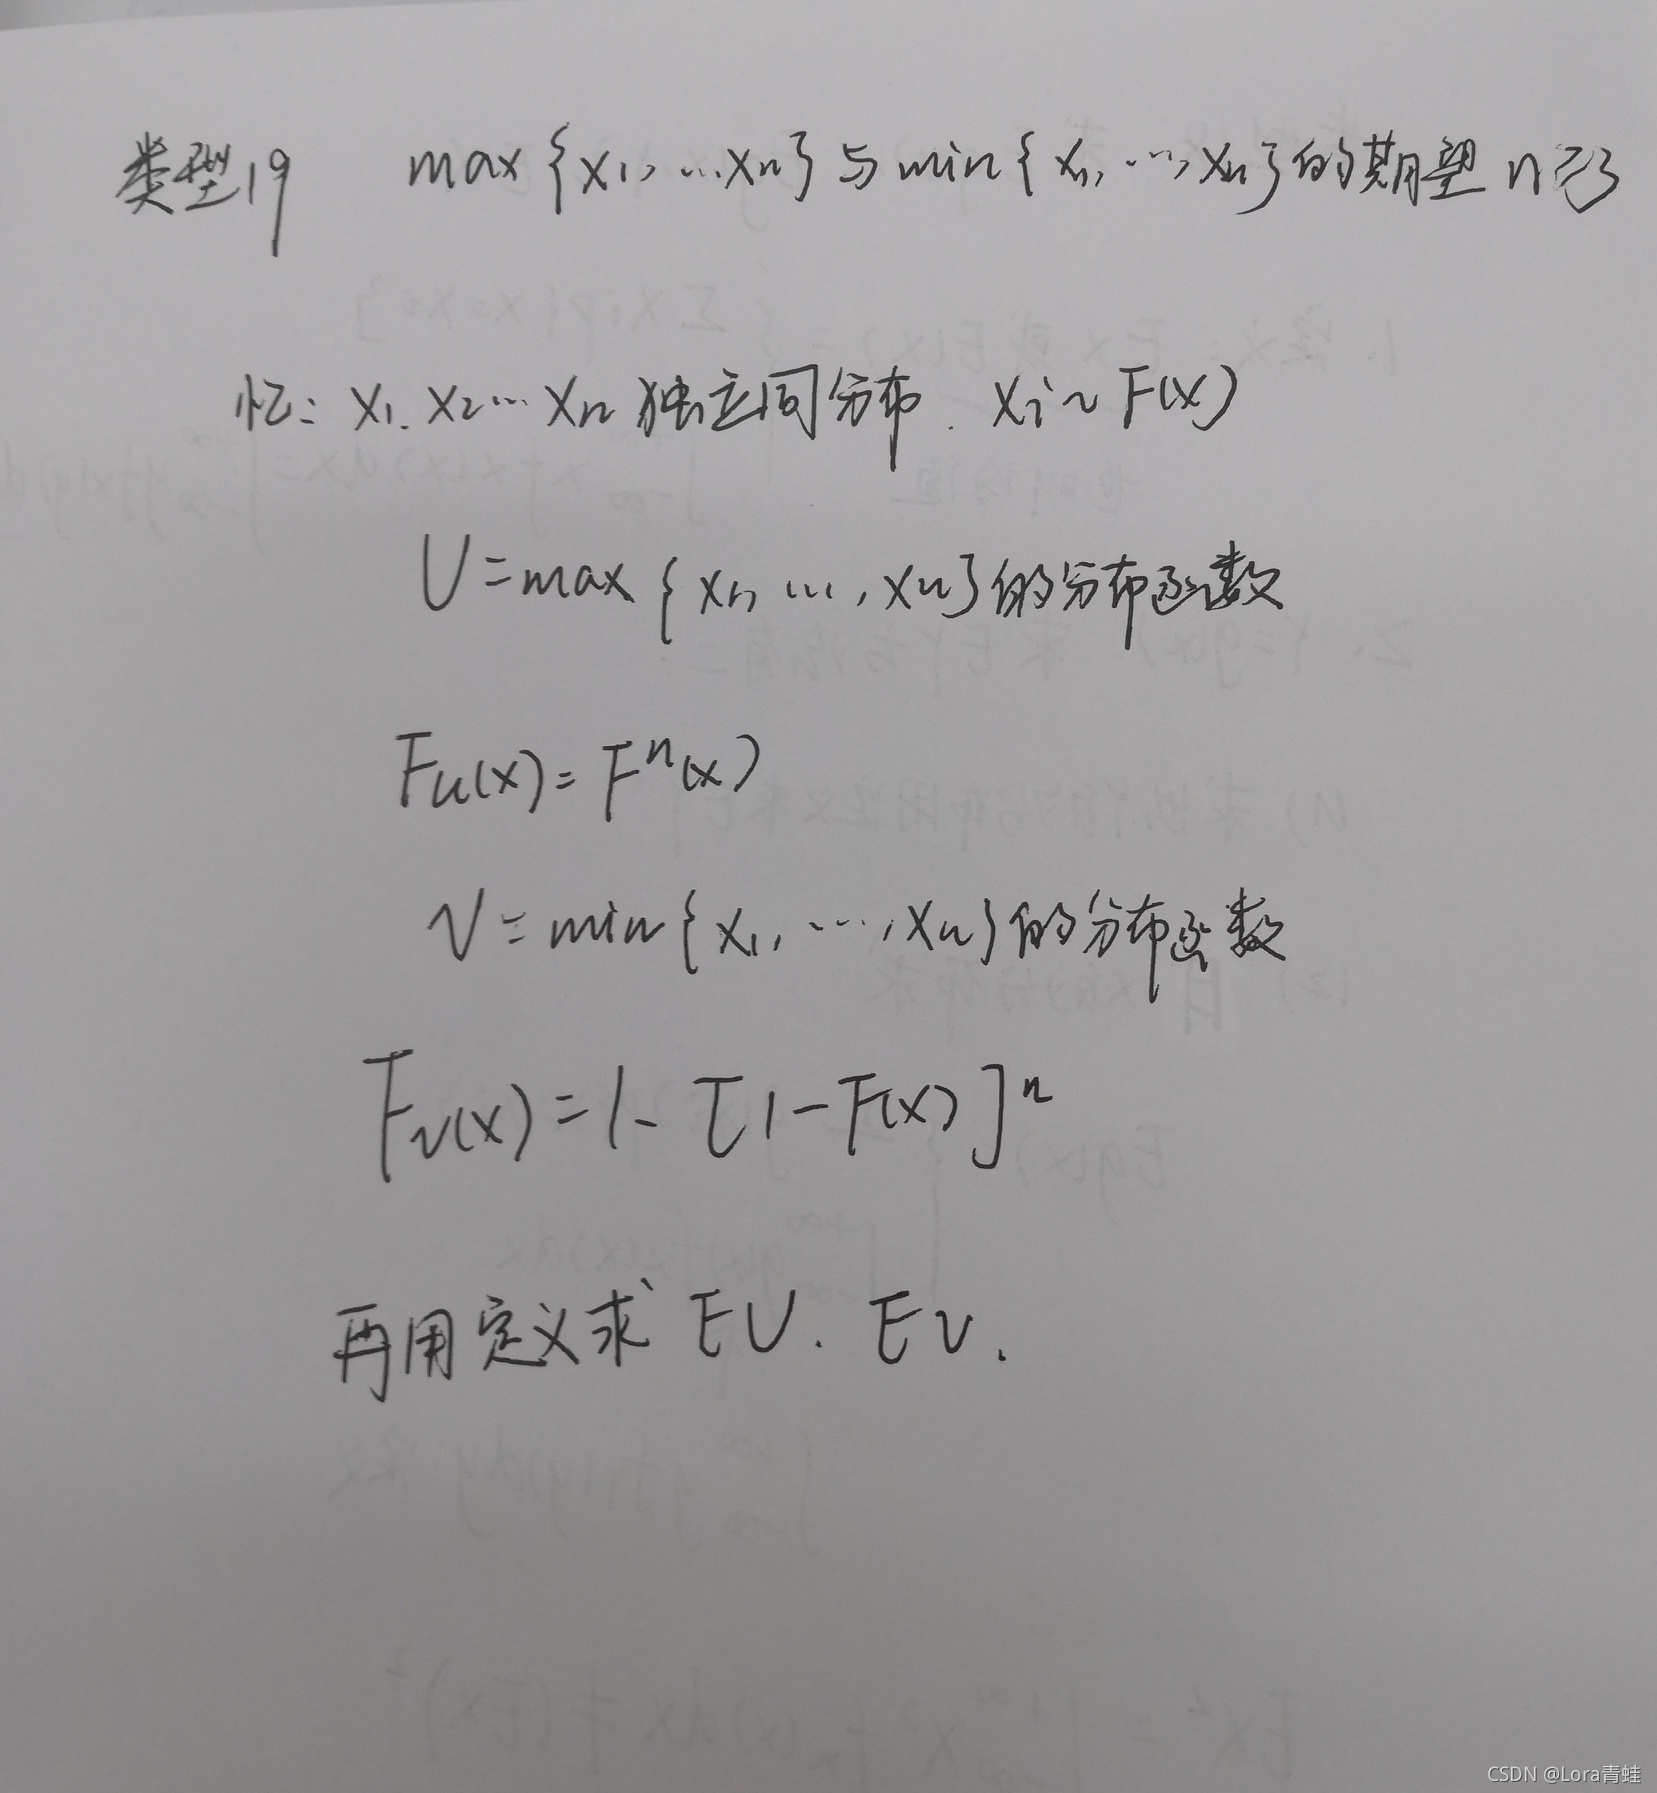 类型19 max{x₁, …xₙ}与min{x₁, …, xₙ}的期望 n≥3
忆: x₁. x₂… xₙ 独立同分布. xᵢ~F(x)
U=max{x₁, …, xₙ}的分布函数
Fᵤ(x)=Fⁿ(x)
V=min{x₁, …, xₙ}的分布函数
Fᵥ(x)=1-[1-F(x)]ⁿ
再用定义求 EU. EV.
CSDN @Lora青蛙